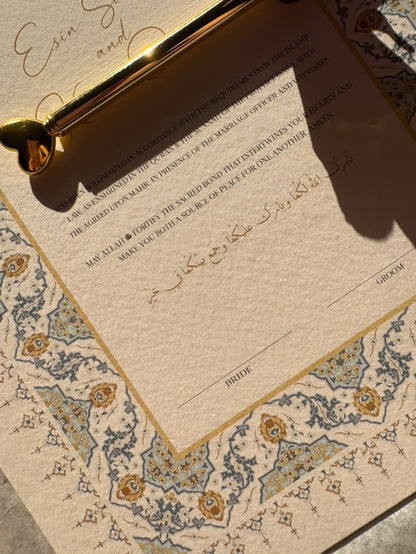 Esin
and
HAS BEEN SOLEMNIZED IN ACCORDANCE WITH THE REQUIREMENTS OF THE ISLAMIC
LAW, AS ENSHRINED IN THE QURAN & THE SUNNAH OF THE WITH
THE AGREED UPON MAHR, IN PRESENCE OF THE MARRIAGE OFFICER AND WITNESSES.
MAY ALLAH ﷻ FORTIFY THE SACRED BOND THAT INTERTWINES YOUR HEARTS AND
MAKE YOU BOTH A SOURCE OF PEACE FOR ONE ANOTHER. AMEEN.
بارك الله لكما وبارك عليكما وجمع بينكما في خير
BRIDE
GROOM